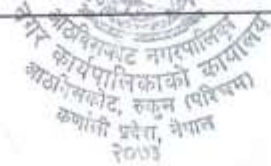 आठबिसकोट नगरपालिका
नगर कार्यपालिकाको कार्यालय
आठबिसकोट, रुकुम (पश्चिम)
कर्णाली प्रदेश, नेपाल
२०७३